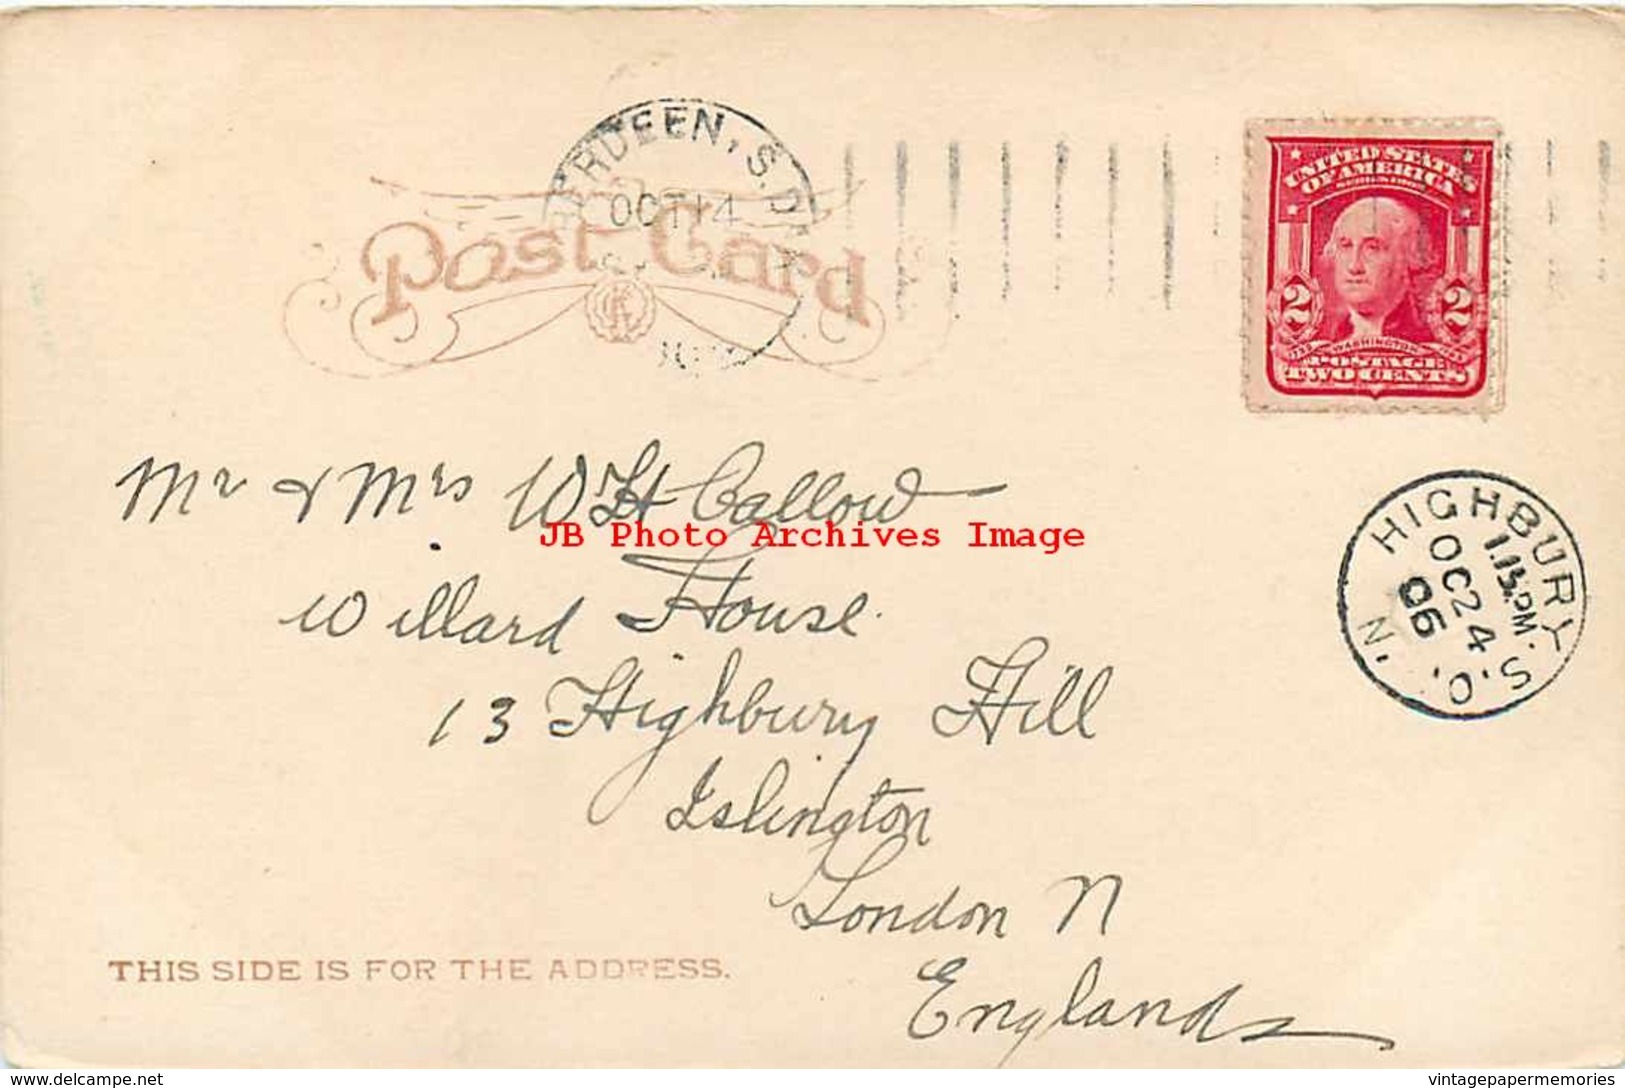 ABERDEEN, S.DAK.
OCT 14
Post Card
UNITED STATES
OF AMERICA
2 2
WASHINGTON
POSTAGE
TWO CENTS
Mr & Mrs W H Callow
JB Photo Archives Image
Willard House.
13 Highbury Hill
Islington
London N
England
HIGHBURY S.O. N.
1.15 PM.
OC 24
06
THIS SIDE IS FOR THE ADDRESS.
www.delcampe.net
vintagepapermemories